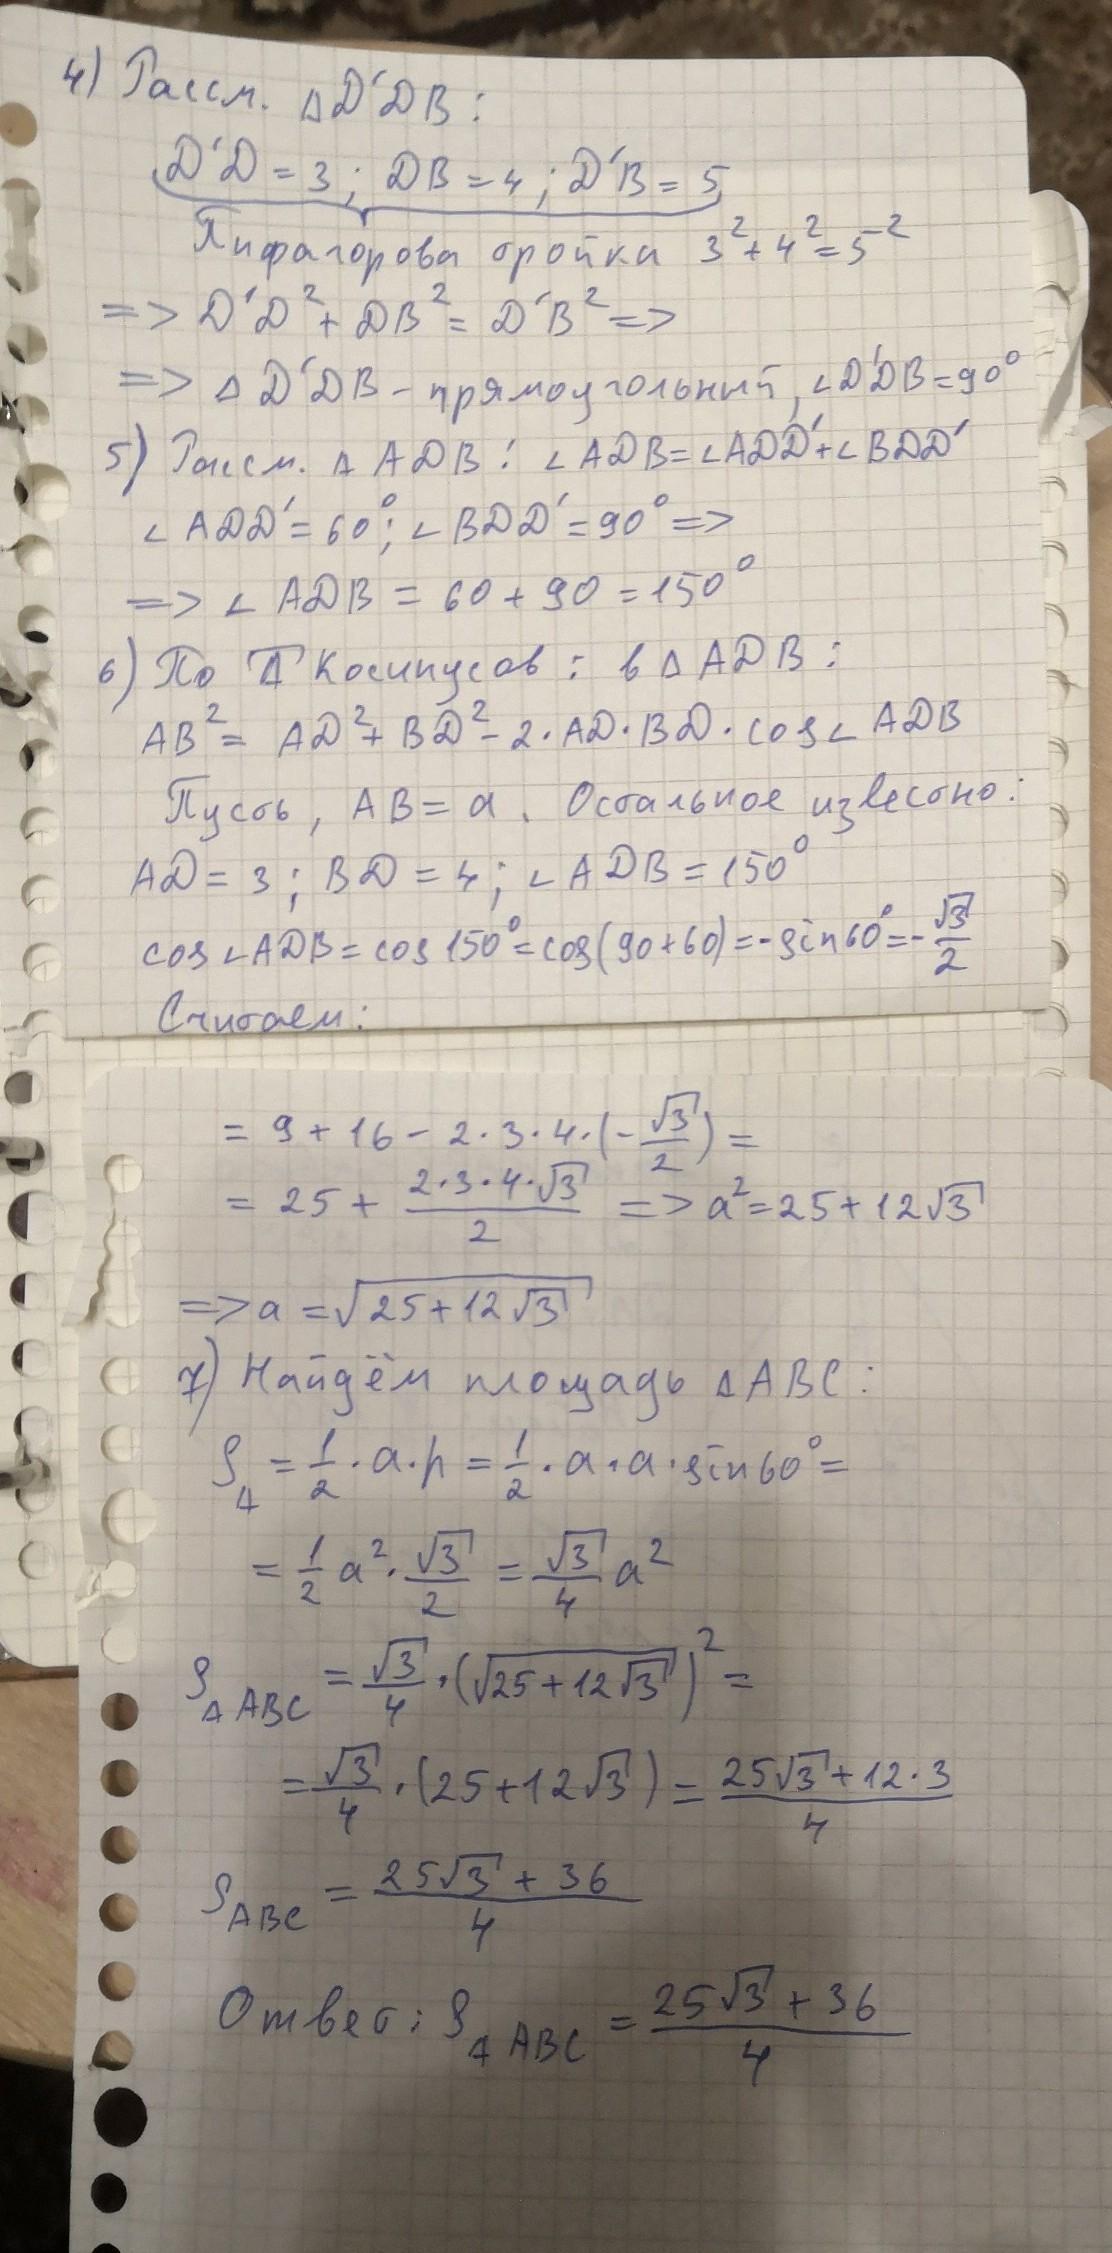 4) Рассм. △D'DB:
D'D = 3; DB = 4; D'B = 5
Пифагорова тройка 3² + 4² = 5²
=> D'D² + DB² = D'B² =>
=> △ D'DB - прямоугольный, ∠D'DB = 90°
5) Рассм. △ ADB: ∠ADB = ∠ADD' + ∠BDD'
∠ADD' = 60°; ∠BDD' = 90° =>
=> ∠ADB = 60 + 90 = 150°
6) По Т Косинусов: в △ADB:
AB² = AD² + BD² - 2·AD·BD·cos∠ADB
Пусть, AB = a. Остальное известно:
AD = 3; BD = 4; ∠ADB = 150°
cos∠ADB = cos150° = cos(90+60) = -sin60° = -√3/2
Считаем:
= 9 + 16 - 2·3·4·(-√3/2) =
= 25 + 2·3·4·√3/2 => a² = 25 + 12√3
=> a = √(25 + 12√3)
7) Найдём площадь △ABC:
S△ = 1/2·a·h = 1/2·a·a·sin60° =
= 1/2 a²·√3/2 = √3/4 a²
S△ABC = √3/4·(√(25 + 12√3))² =
= √3/4·(25 + 12√3) = (25√3 + 12·3)/4
SABC = (25√3 + 36)/4
Ответ: S△ABC = (25√3 + 36)/4